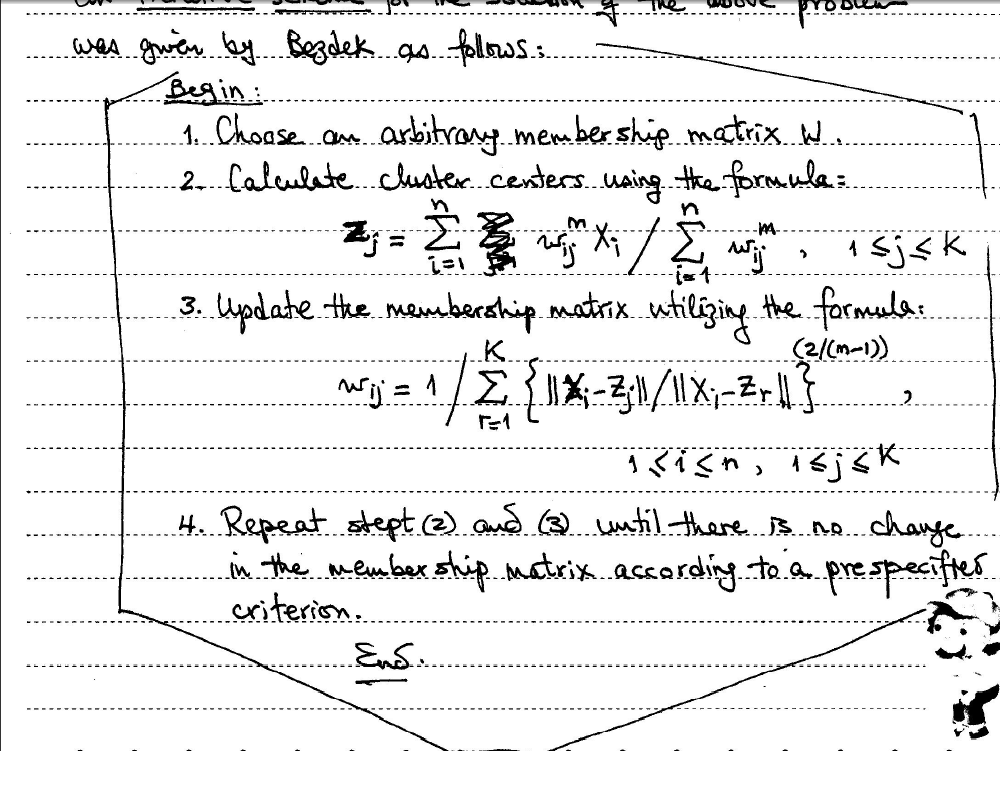 an iterative scheme for the solution of the above problem
was given by Bezdek as follows:
Begin:
1. Choose an arbitrary membership matrix W.
2. Calculate cluster centers using the formula:
Zj = Σ_{i=1}^{n} w_{ij}^{m} Xi / Σ_{i=1}^{n} w_{ij}^{m} , 1 ≤ j ≤ K
3. Update the membership matrix utilizing the formula:
w_{ij} = 1 / Σ_{r=1}^{K} { ||Xi - Zj|| / ||Xi - Zr|| }^{(2/(m-1))} ,
1 ≤ i ≤ n, 1 ≤ j ≤ K
4. Repeat stept (2) and (3) until there is no change
in the membership matrix according to a prespecified
criterion.
End.